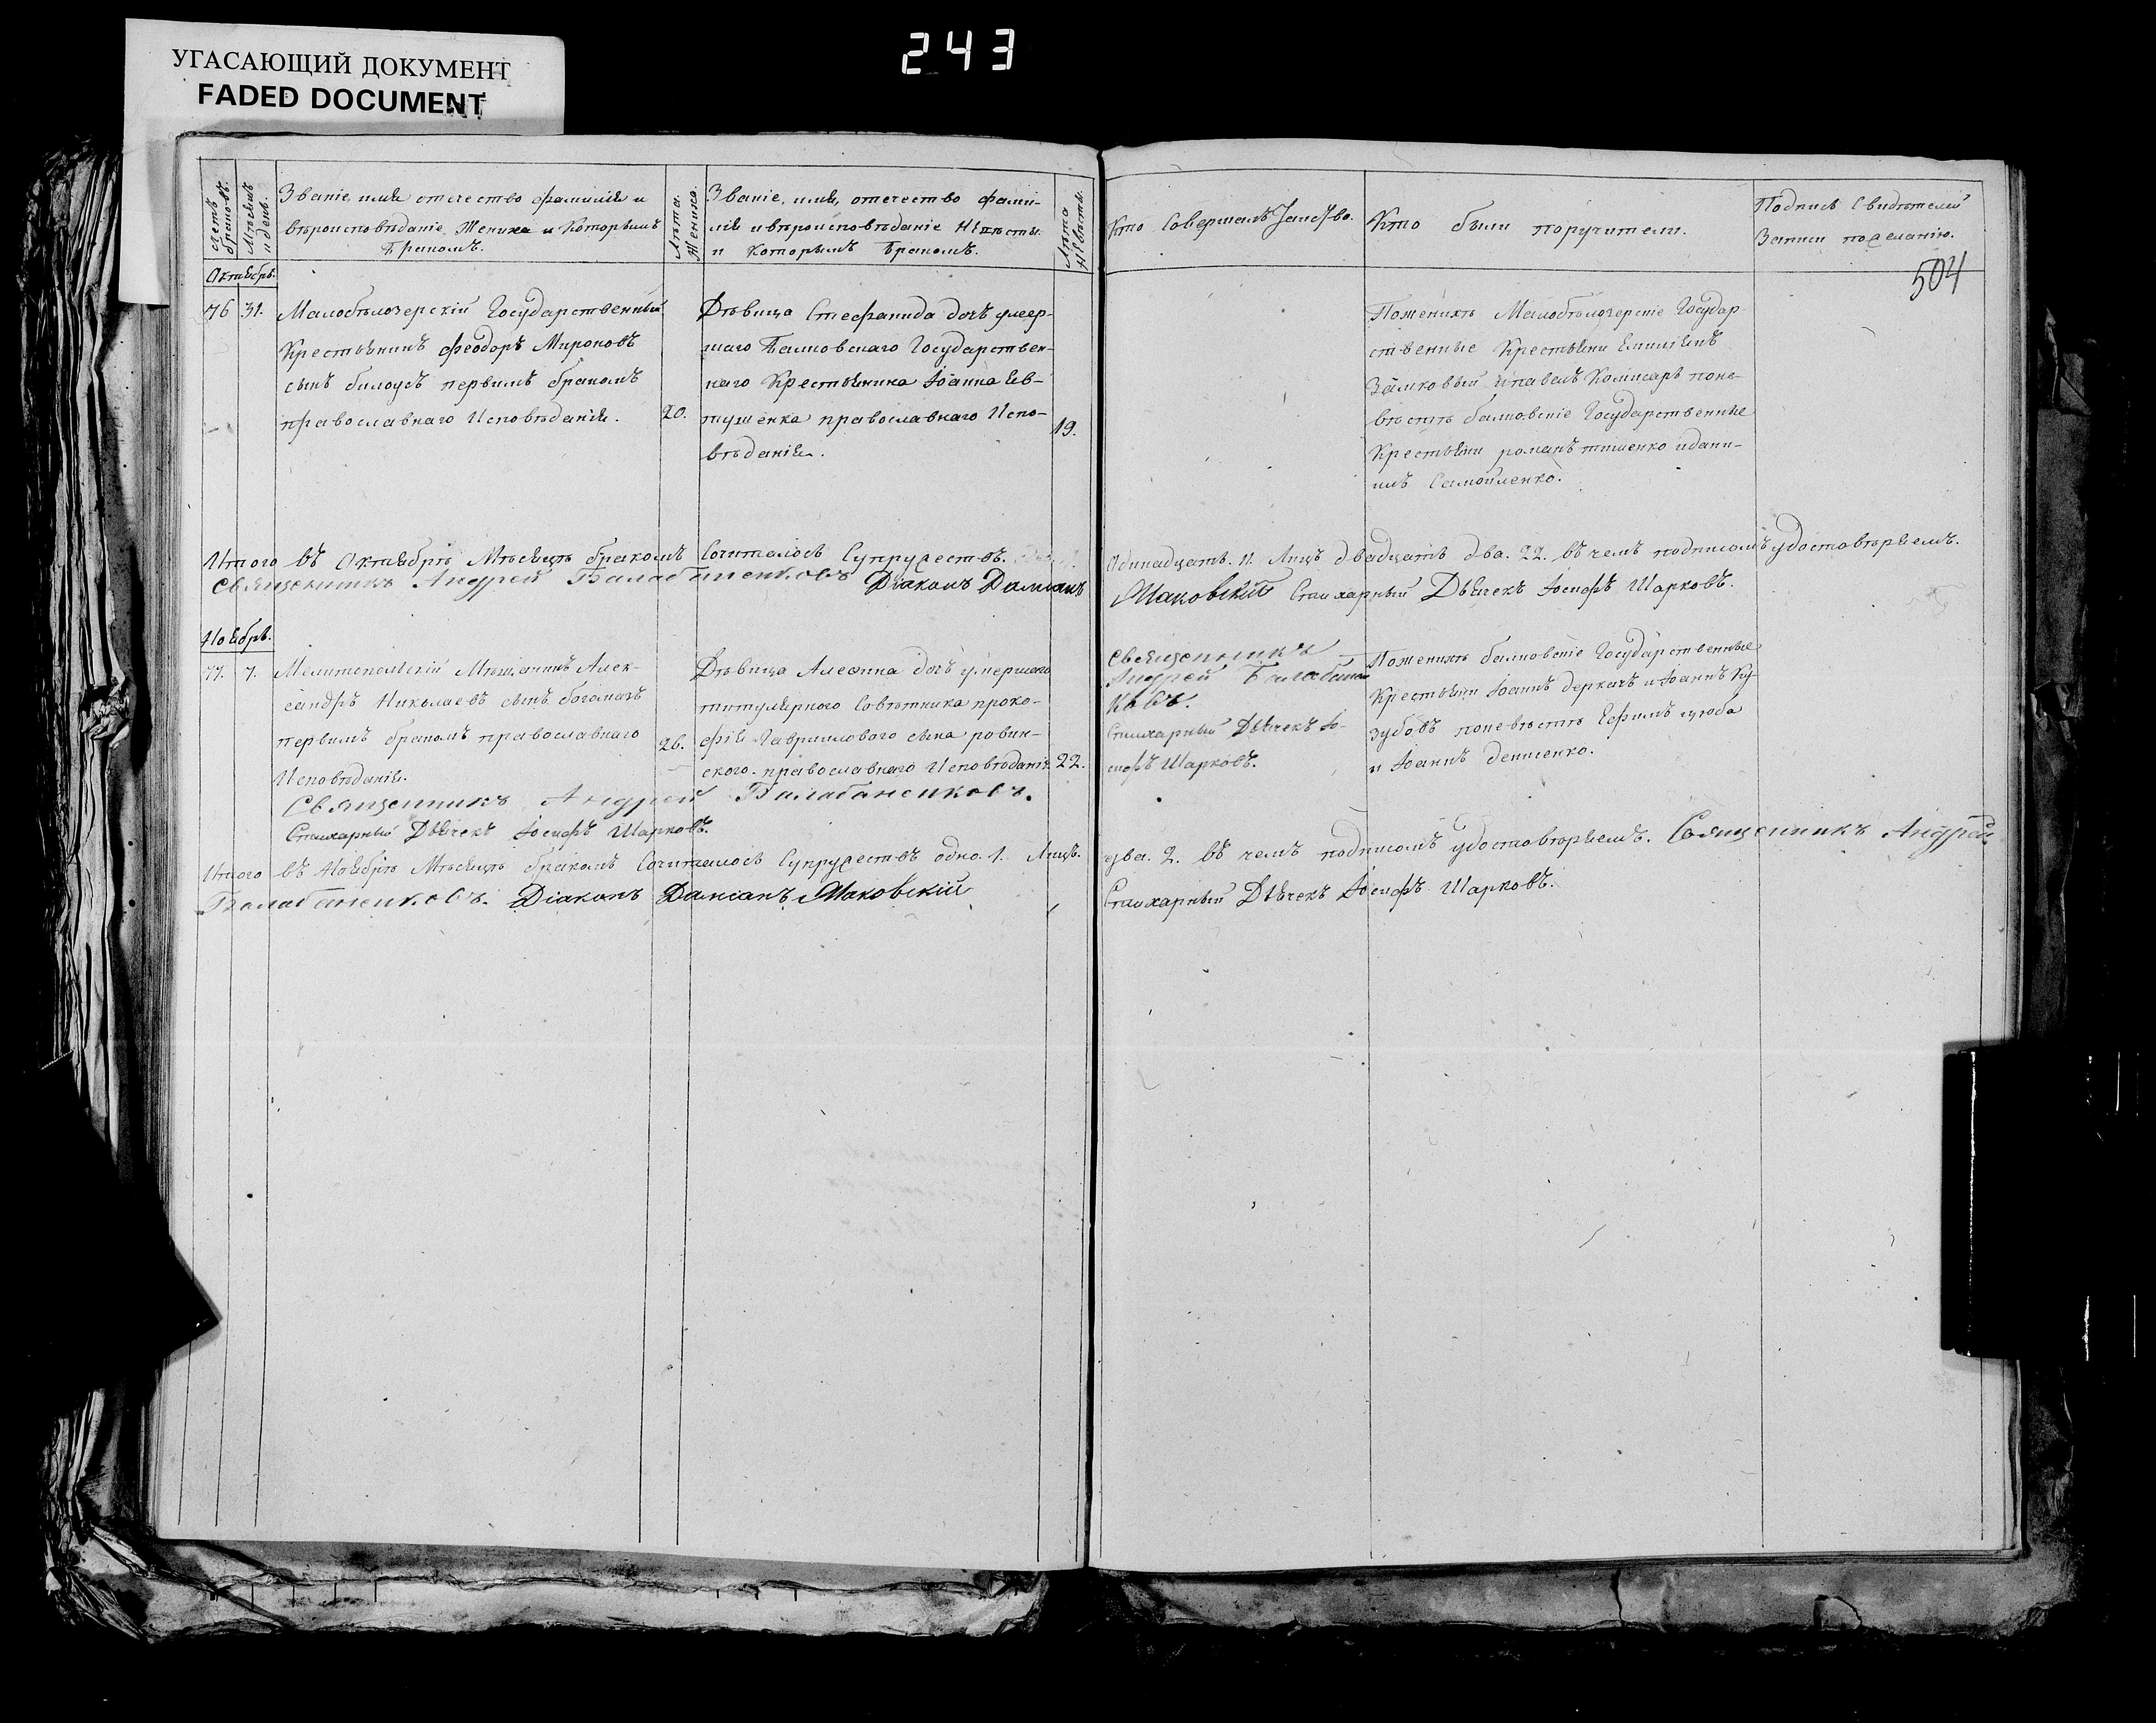 УГАСАЮЩИЙ ДОКУМЕНТ
FADED DOCUMENT
243
504
Счетъ браковъ.
Мѣсяцъ и день.
Званіе, имя отечество фамилія и
вѣроисповѣданіе Жениха и Которымъ
Бракомъ.
Лѣта Жениха.
Званіе, имя, отечество фами-
лія и вѣроисповѣданіе Невѣсты
и Которымъ Бракомъ.
Лѣта Невѣсты.
Кто Совершалъ Таинство.
Кто были поручители.
Подпись Свидѣтелей
Записи по желанію.
Октябрь.
76 31.
Малобѣлозерскій Государственный
Крестьянинъ Феодоръ Мироновъ
сынъ билоусъ первымъ бракомъ
православнаго Исповѣданія.
20.
Дѣвица Стефанида дочь умер-
шаго Балковскаго Государствен-
наго Крестьянина Іоанна Ев-
тушенка православнаго Испо-
вѣданія.
19.
Поженихѣ Малобѣлозерскіе Государ
ственные Крестьяни Емиліянъ
Замковый и павелъ Комисаръ поне-
вѣстѣ балковскіе Государственные
Крестьяни романъ тишенко идани-
илъ Самойленко.
Итого въ Октябрѣ Мѣсяцѣ бракомъ Сочеталось Супружествъ. Одинадцать. 11. Лицъ двадцать два. 22. въ чемъ подписомъ удостовѣряемъ.
Священникъ Андрей Балабаненковъ Діаконъ Даміанъ Маковскій Стихарный Дьячекъ Іосифъ Шарковъ.
Ноябрь.
77. 7.
Мелитопольскій Мѣщанинъ Алек-
сандръ Николаевъ сынъ богомазъ
первымъ бракомъ православнаго
Исповѣданія.
26.
Дѣвица Алесина дочь умершаго
титулярного Совѣтника проко-
фія Гавриилового сына ровин-
ского. православнаго Исповѣданія.
22.
Священникъ
Андрей Балабанен
ковъ.
Стихарный Дьячекъ Іо-
сифъ Шарковъ.
Поженихѣ балковскіе Государственные
Крестьяни Іоаннъ деркачъ и Іоаннъ Ку-
зубовъ поневѣстѣ Ефимъ цюба
и Іоаннъ денисенко.
Священникъ Андрей Балабаненковъ.
Стихарный Дьячекъ Іосифъ Шарковъ.
Итого въ Ноябрѣ Мѣсяцѣ бракомъ Сочеталось Супружествъ одно. 1. Лицъ. два. 2. въ чемъ подписомъ удостовѣряемъ. Священникъ Андрей
Балабаненковъ. Діаконъ Даміанъ Маковскій Стихарный Дьячекъ Іосифъ Шарковъ.